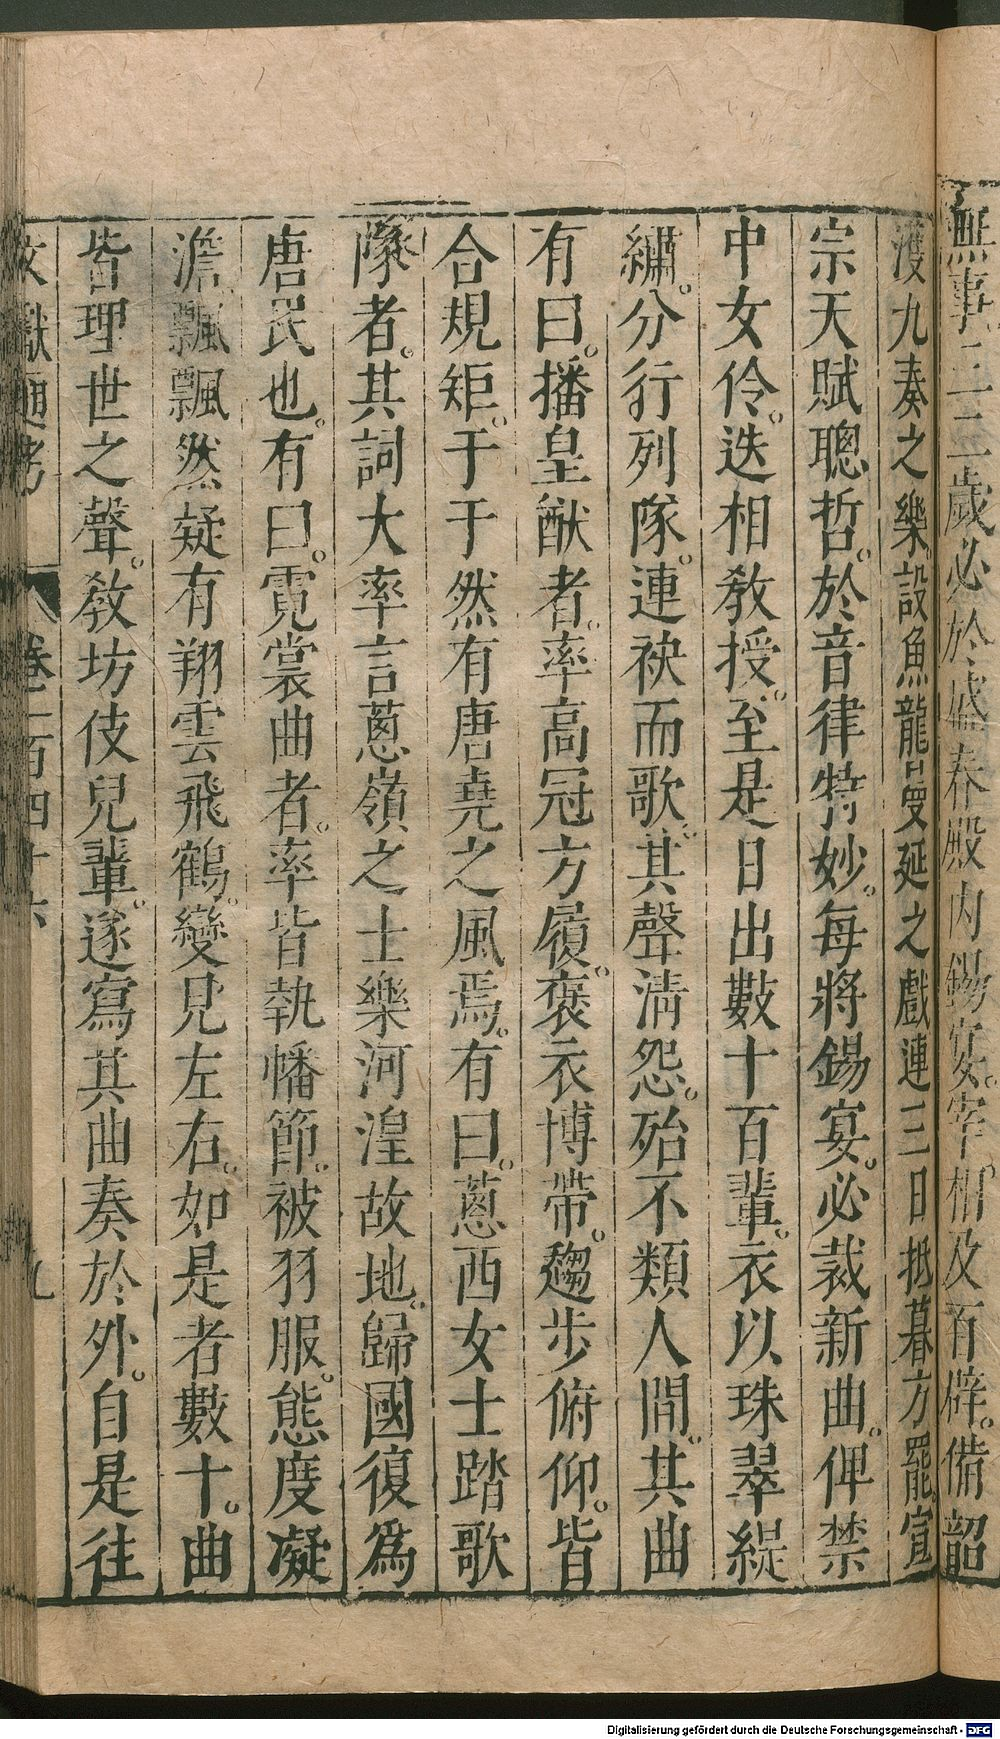 無事三二歲必於盛春殿內錫宴宰相及百辟備韶
濩九奏之樂設魚龍曼延之戲連三日抵暮方罷宣
宗天賦聰哲於音律特妙每將錫宴必裁新曲俾禁
中女伶迭相教授至是日出數十百輩衣以珠翠緹
繡分行列隊連袂而歌其聲清怨殆不類人間其曲
有曰播皇猷者率高冠方履褒衣博帶趨步俯仰皆
合規矩于于然有唐堯之風焉有曰蔥西女士踏歌
隊者其詞大率言蔥嶺之士樂河湟故地歸國復爲
唐民也有曰霓裳曲者率皆執幡節被羽服態度凝
澹飄飄然疑有翔雲飛鶴變見左右如是者數十曲
皆理世之聲教坊伎兒輩遂寫其曲奏於外自是往
文獻通考 卷一百四十六 九
Digitalisierung gefördert durch die Deutsche Forschungsgemeinschaft - DFG